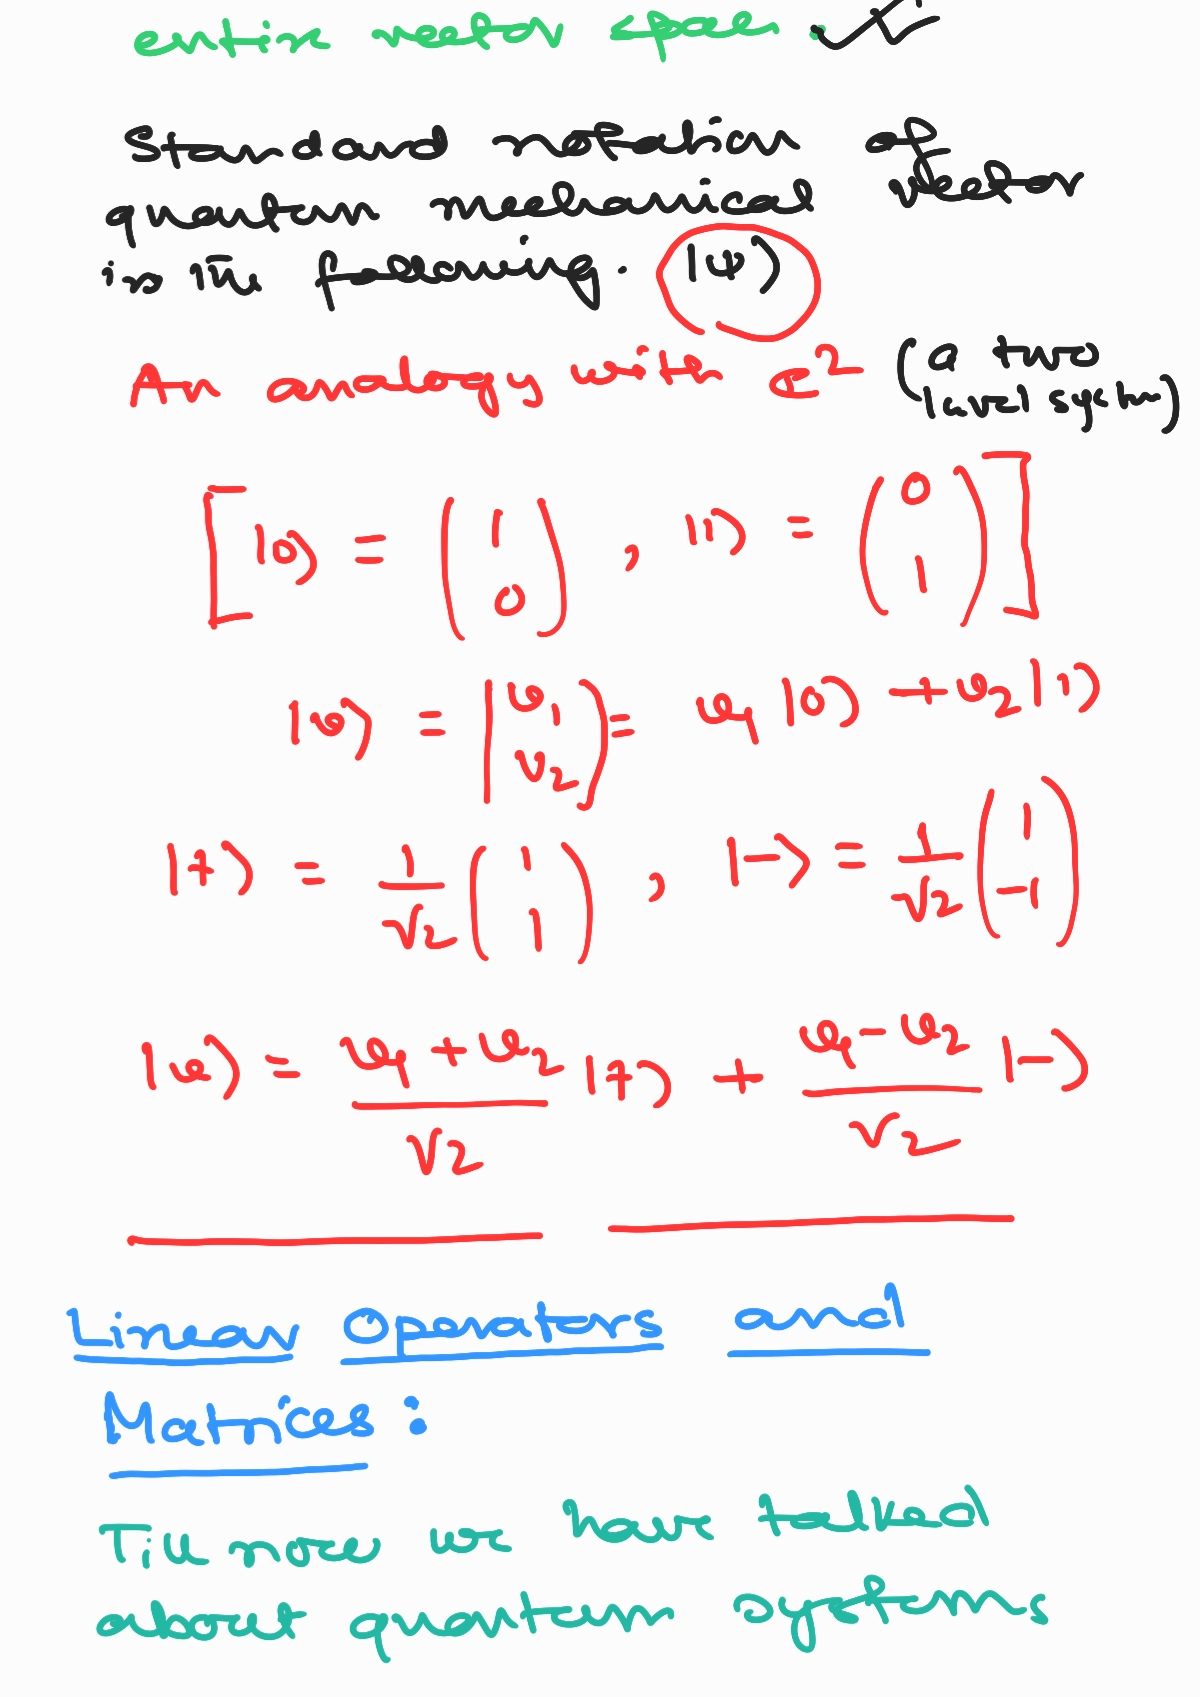 entire vector space.
Standard notation of
quantum mechanical vector
is the following. |ψ⟩
An analogy with ℂ² (a two
level system)
[|0⟩ = (1 0), |1⟩ = (0 1)]
|v⟩ = (v₁ v₂) = v₁|0⟩ + v₂|1⟩
|+⟩ = 1/√2 (1 1), |-⟩ = 1/√2 (1 -1)
|v⟩ = (v₁ + v₂)/√2 |+⟩ + (v₁ - v₂)/√2 |-⟩
Linear Operators and
Matrices:
Till now we have talked
about quantum systems